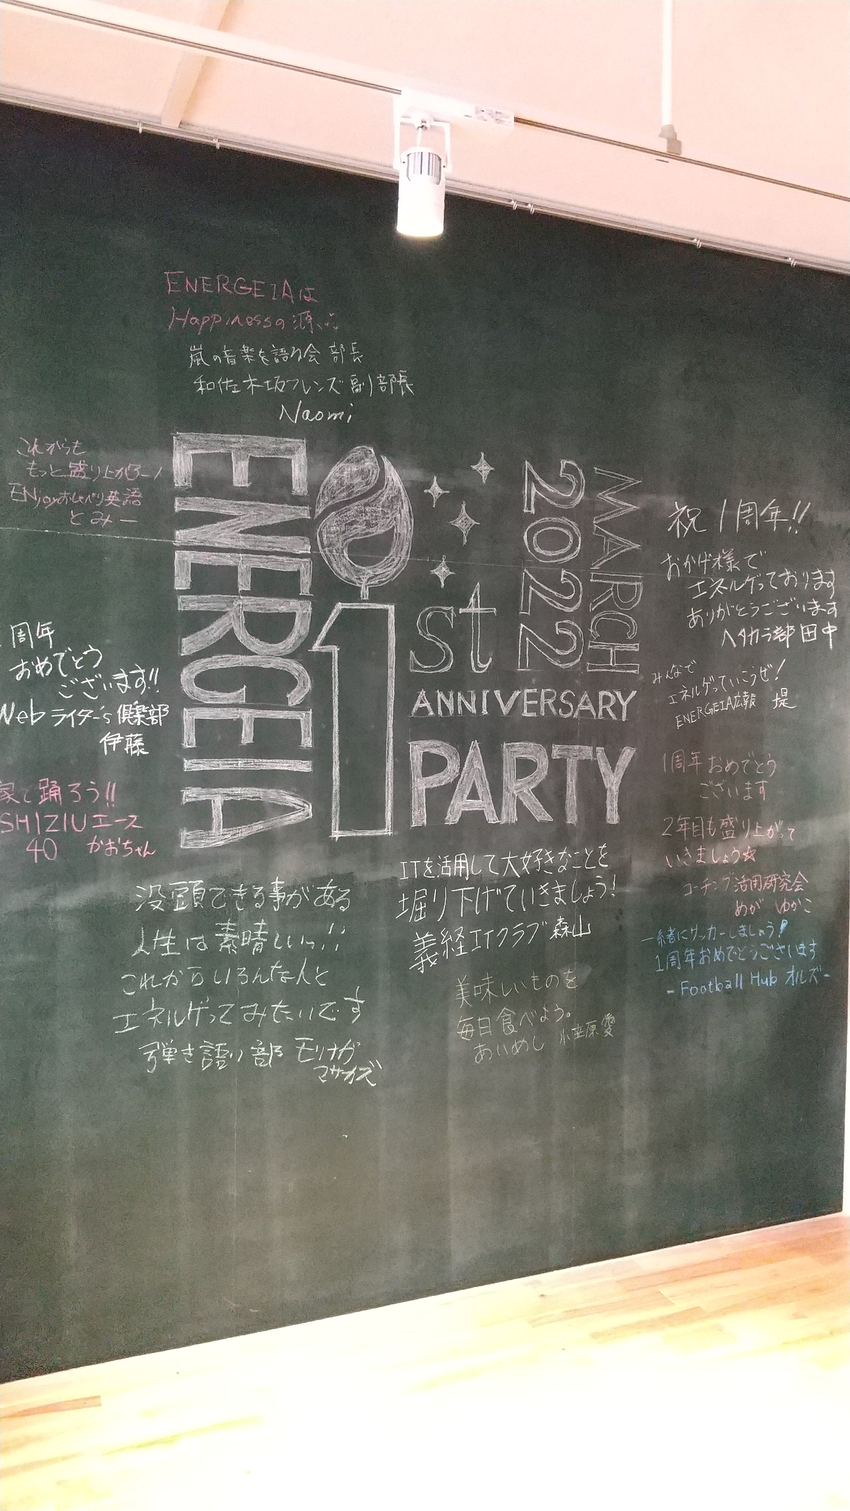 ENERGEIAは
Happinessの源
嵐の音楽を語り会 部長
和佐木坂フレンズ 副部長
Naomi
これからも
もっと盛り上がろー!
ENjoyおしゃべり英語
とみー
周年
おめでとう
ございます!!
Webライダー's倶楽部
伊藤
家で踊ろう!!
SHIZIUエース
40 かおちゃん
ENERGEIA
1st
ANNIVERSARY
PARTY
MARCH
2022
祝1周年!!
おかげ様で
エネルゲっております
ありがとうございます
ヘタカラ部 田中
みんなで
エネルゲっていこうぜ!
ENERGEIA広報 堤
1周年おめでとう
ございます
2年目も盛り上がって
いきましょう☆
コーチング活用研究会
めが ゆかこ
一緒にサッカーしましょう!
1周年おめでとうございます
-Football Hub オルズ-
没頭できる事がある
人生は素晴しいっ!!
これからいろんな人と
エネルゲってみたいです
弾き語り部 モリナガ
マサカズ
ITを活用して大好きなことを
堀り下げていきましょう!
義経ITクラブ 森山
美味しいものを
毎日食べよう。
あいめし 小笠原愛